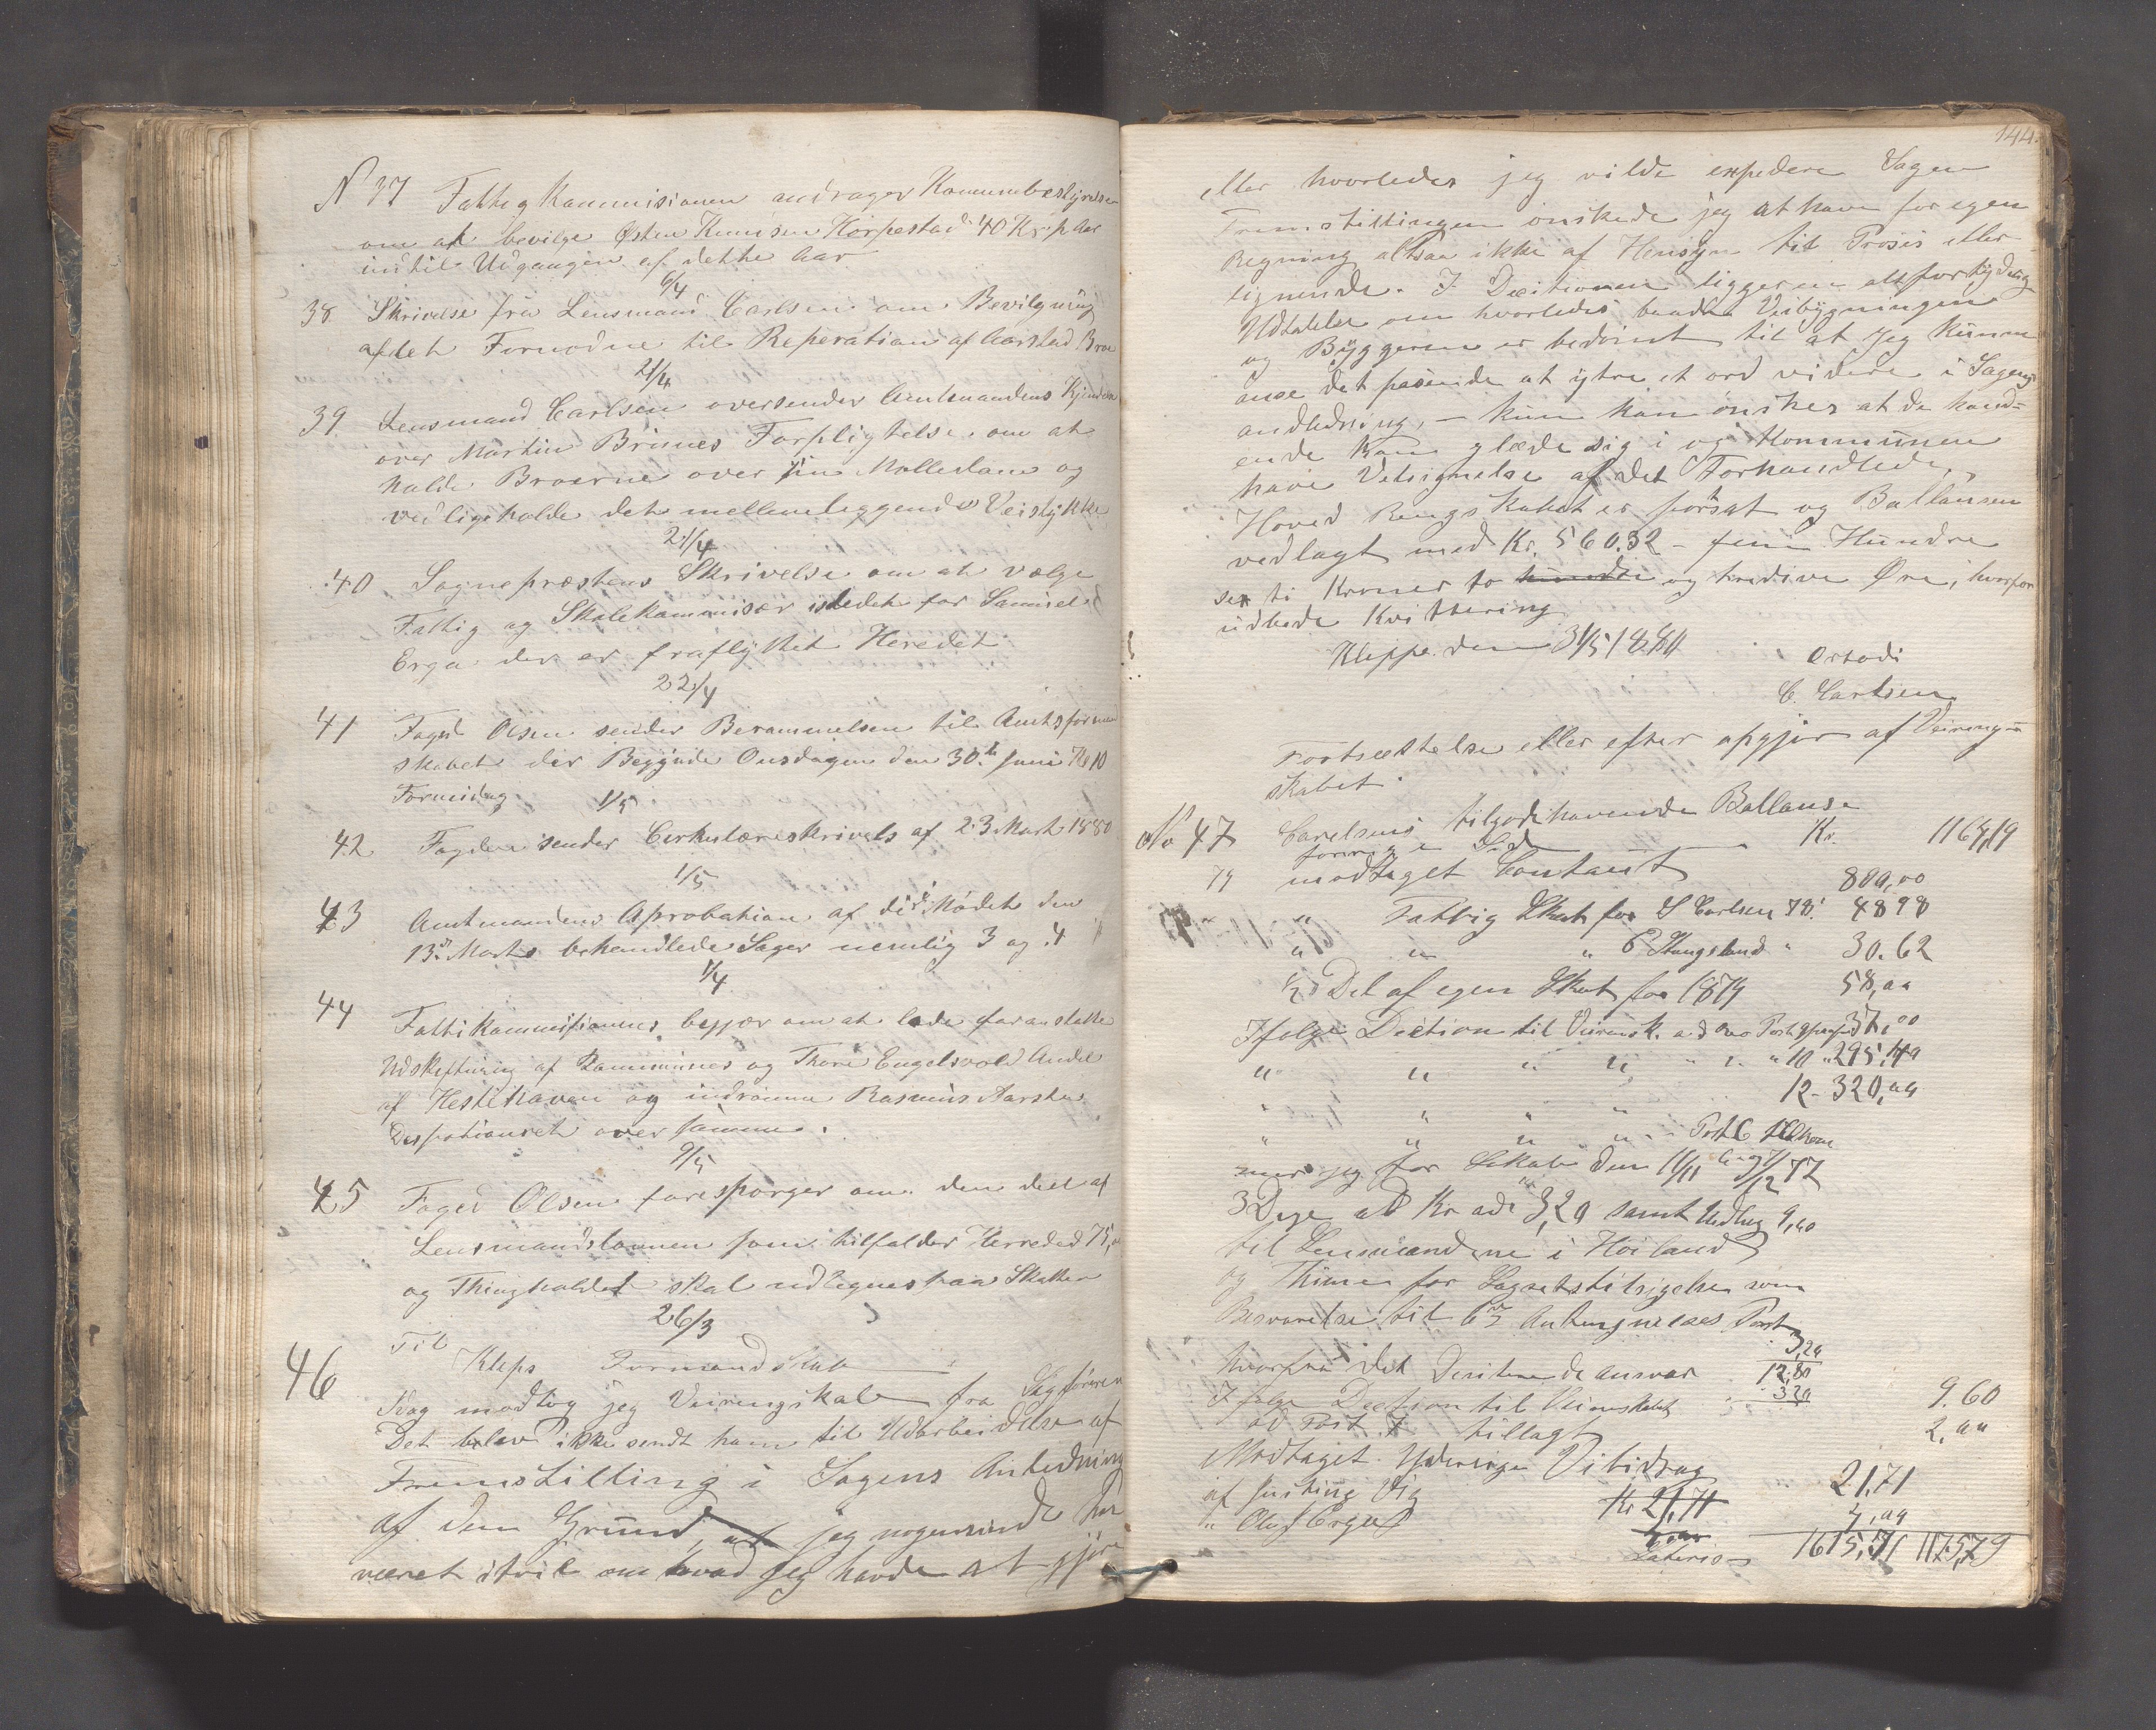 N 37 Fattig Kammisionen andrager Kommunebestyrelsen
om at bevilge Østen Knudsen Horpestad 40 Kr. p Aar
indtil Udgangen af dette Aar
6/4
38 Skrivelse fra Lensmand Carlsen om Bevilgning
af det Fornødne til Reperation af Aarstad Broe
21/4
39 Lensmand Carlsen oversender Amtmandens Kjendelse
over Martin Brunes Forpligtelse om at
holde Broerne over sin Mølledam og
vedligeholde det mellemleggende Veistykke
21/4
40 Sogneprestens Skrivelse om at vælge
Fattig og Skolekammisær istedet for Samuel
Erga der er fraflyttet Heredet
22/4
41 Foged Olsen sender Berammelsen til Amtsformand
skabet der Begynder Onsdagen den 30te Juni Kl 10
Formidag 1/5
42 Fogden sender Cirkulæreskrivels af 23 Marts 1880
1/5
43 Amtmandens Aprobation af de i Mødet den
13de Marts behandlede Sager nemlig 3 og 4
1/4
44 Fattikammisionens begjær om at lade foranstalte
Udskiftning af Kammunes og Thore Engelsvold Andel
af Hestehaven og indrømme Rasmus Aarstad
Desposionsret over samme.
9/5
45 Foged Olsen forespørger om den del af
Lensmandslønnen som tilfalder Herreded 75,
og Thingholdet skal udlegnes paa Skatten
26/3
46 Til
Kleps Formandskab
Idag modtog jeg Veiringskab fra Sagføreren
Det blev ikke sendt ham til Udarbeidelse af
Fremstilling i Sagens Anledning
af den Grund, at jeg nogensinde har
været itvil om hvad jeg havde at gjøre
144.
eller hvorledes jeg vilde expedere Sagen
Fremstillingen ønskede jeg at have for egen
Regning altsaa ikke af Hensyn til Prosés eller
lignende. I Decitionen ligger en altfor tydelig
Udtalelse om hvorledes baade Veibygningen
og Byggeren er bedømt til at jeg kunne
anse det pasende at ytre et ord videre i Sagens
andledning, - kun kan ønskes at de
ende kan glæde sig i og Kommunen
have Velsignelse af det Forhandlede,
Hoved Rengskabet er forsat og Ballansen
vedlagt med Kr. 560.32 - fem Hundre
sex ti Kroner to og tredive Øre, hvorfor
udbede Kvittering
Kleppe den 31/5 1880
Ærbødi
C. Carlsen
Fortsættelse eller efter opgjør af Veireng=
skabet
No 47 Carelsens tilgodehavende Ballanse
forrige Side Kr. 1164,19
79 modtaget Contant 800,00
" " Fattig Skat for S Carlsen 78. 4898
" " " P Stangeland " 30.62
1/2 Del af egen Skat for 1879 58,00
Ifølge Decition til Veirensk. 37,00
" " " " " " 10 " 295,40
12 - 320,00
" " " " Post 6
mer jeg for Selskab den 11/11 og 7/12 77
3 Dage at Kr ade 3,20 samt Udlæg 9,60
til Lensmændene i Høiland
og Thime for Lagretstilsigelse som
Besvarelse til 6te Antegnelses Post
3,20
hvorfra det Deciterende ansvar 12,80
3,20 9.60
Ifølge Decition til Veirenskabet
ad Post 7 tillagt 2,00
Modtaget Yderlige Veibidrag
af Justine Vig Kr 21,71 21,71
" Oluf Erga 4,00
Lateris 1615,71 1175,79